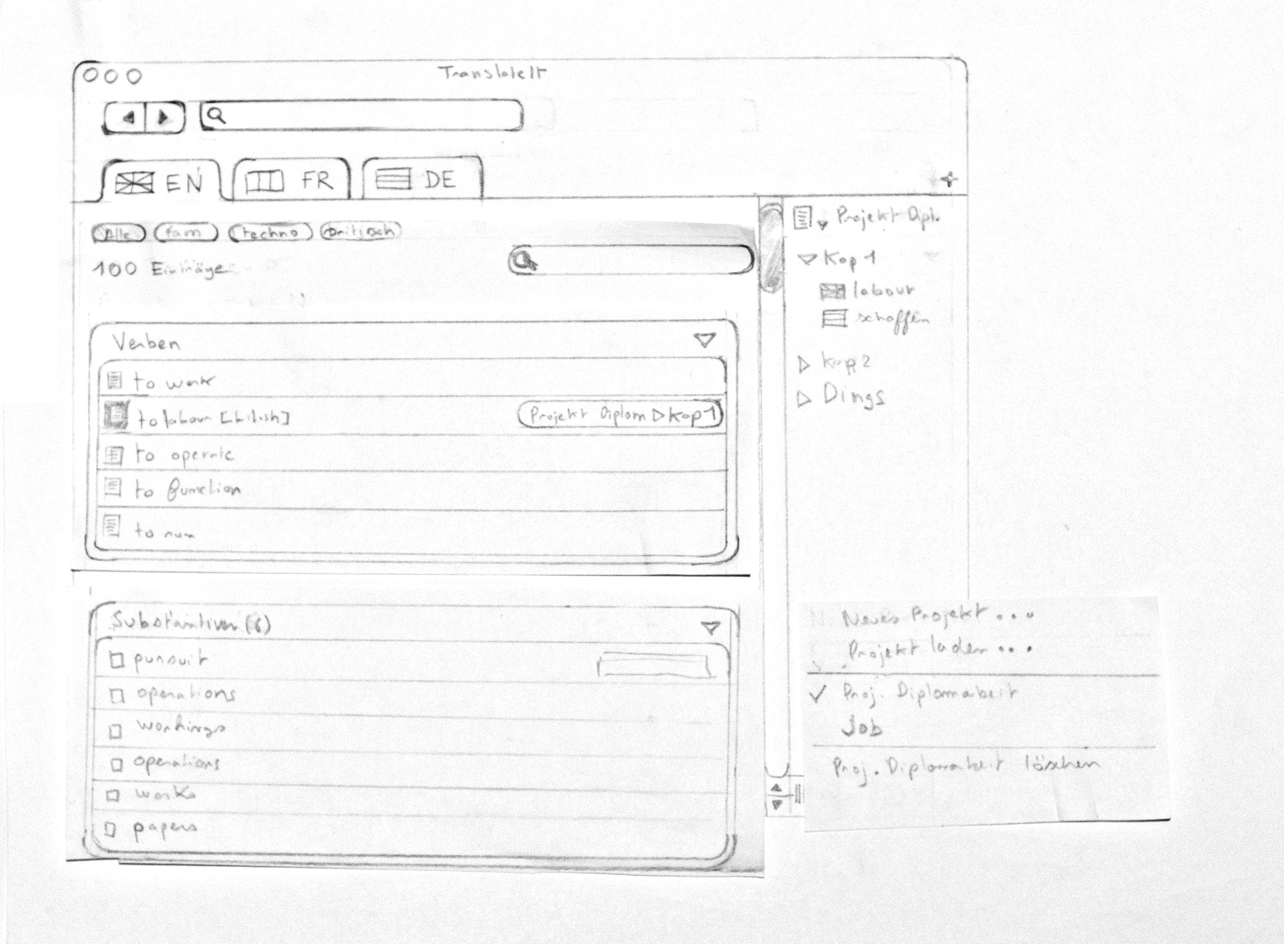 TranslateIt
EN FR DE
Alle fam techno britisch
100 Einträge
Verben
to work
to labour [british] Projekt Diplom ▷ Kap 1
to operate
to function
to run
Substantive (6)
pursuit
operations
workings
operations
works
papers
Projekt Dipl.
Kap 1
labour
schaffen
Kap 2
Dings
Neues Projekt ...
Projekt laden ...
✓ Proj. Diplomarbeit
Job
Proj. Diplomarbeit löschen